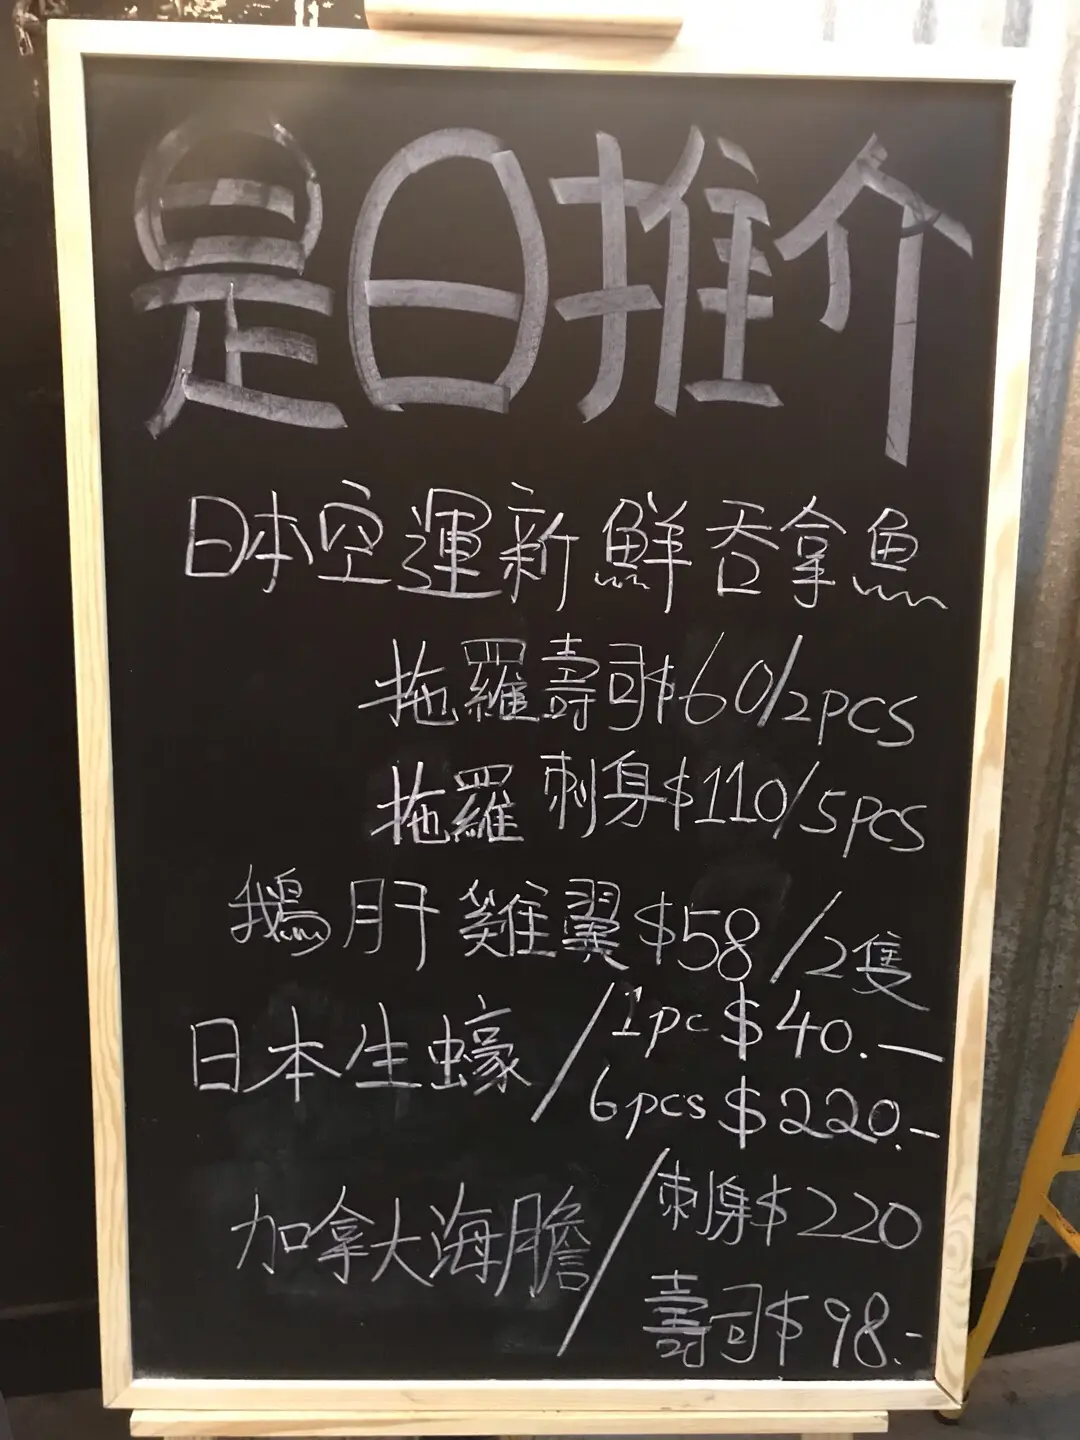 是日推介
日本空運新鮮吞拿魚
拖羅壽司$60/2pcs
拖羅刺身$110/5pcs
鵝肝雞翼$58/2隻
日本生蠔/1pc $40.—
6pcs $220.-
加拿大海膽/刺身$220
壽司$98.-